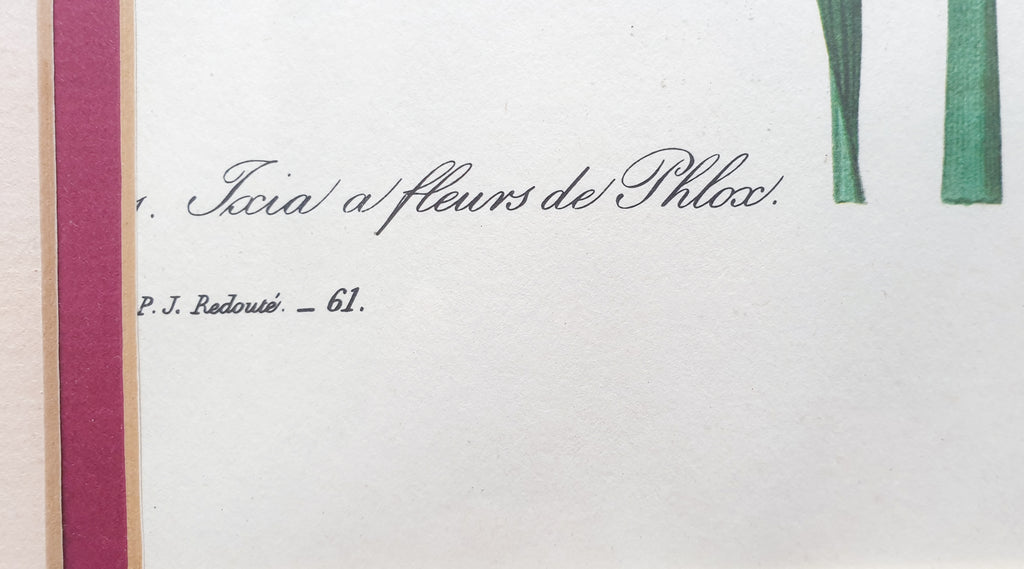 . Ixia a fleurs de Phlox.
P. J. Redouté. – 61.